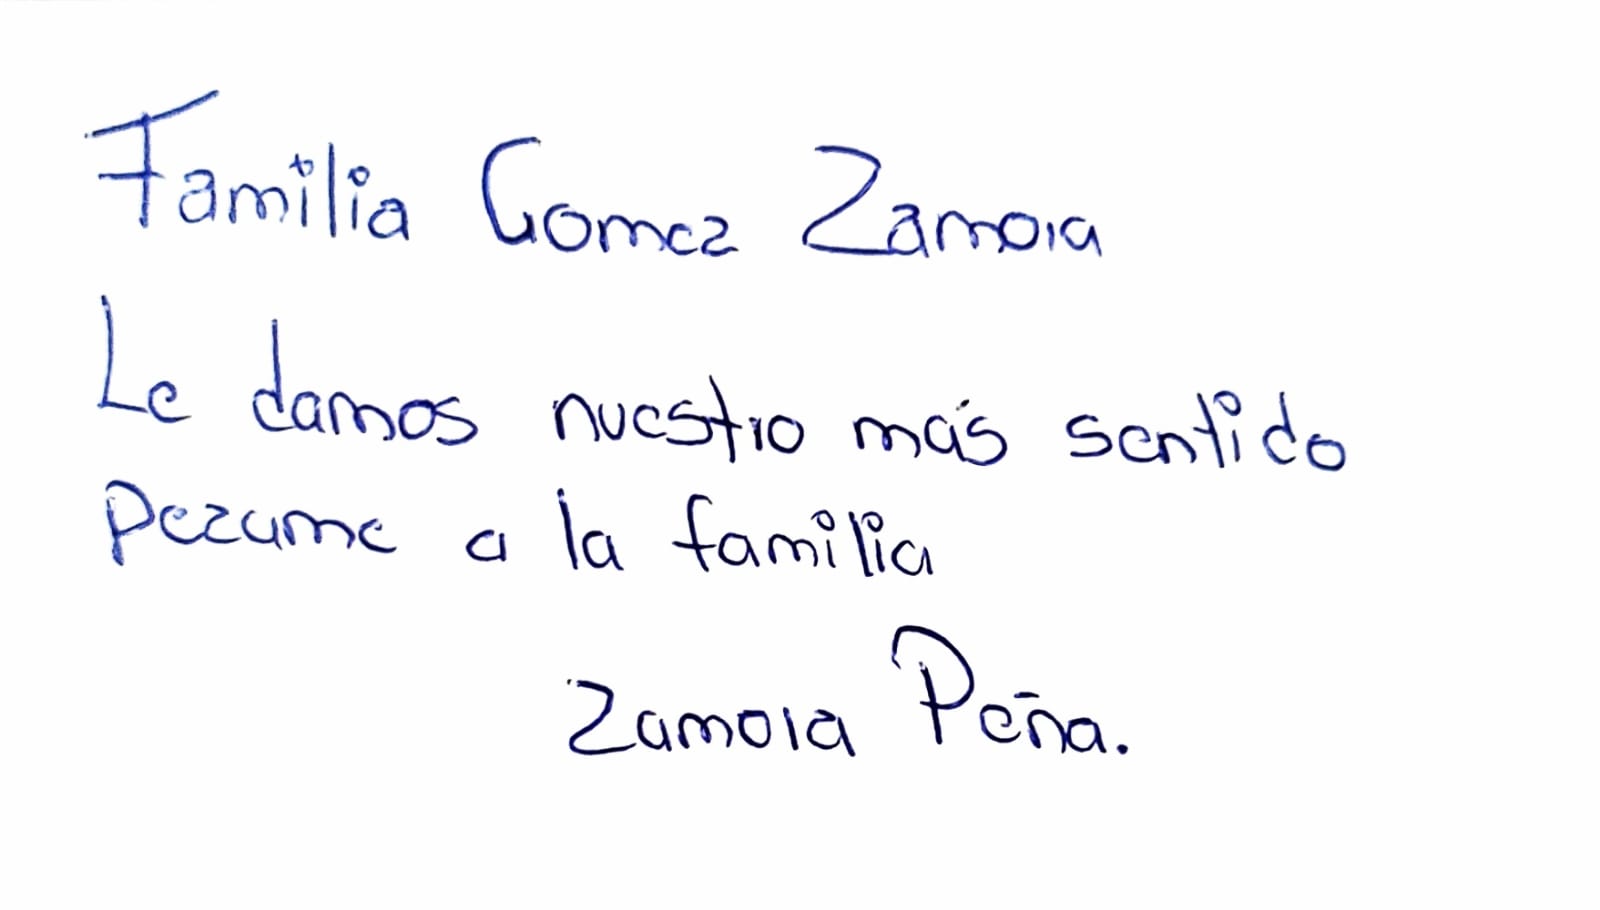 Familia Gomez Zamora
Le damos nuestro más sentido
Pezame a la familia
Zamora Peña.